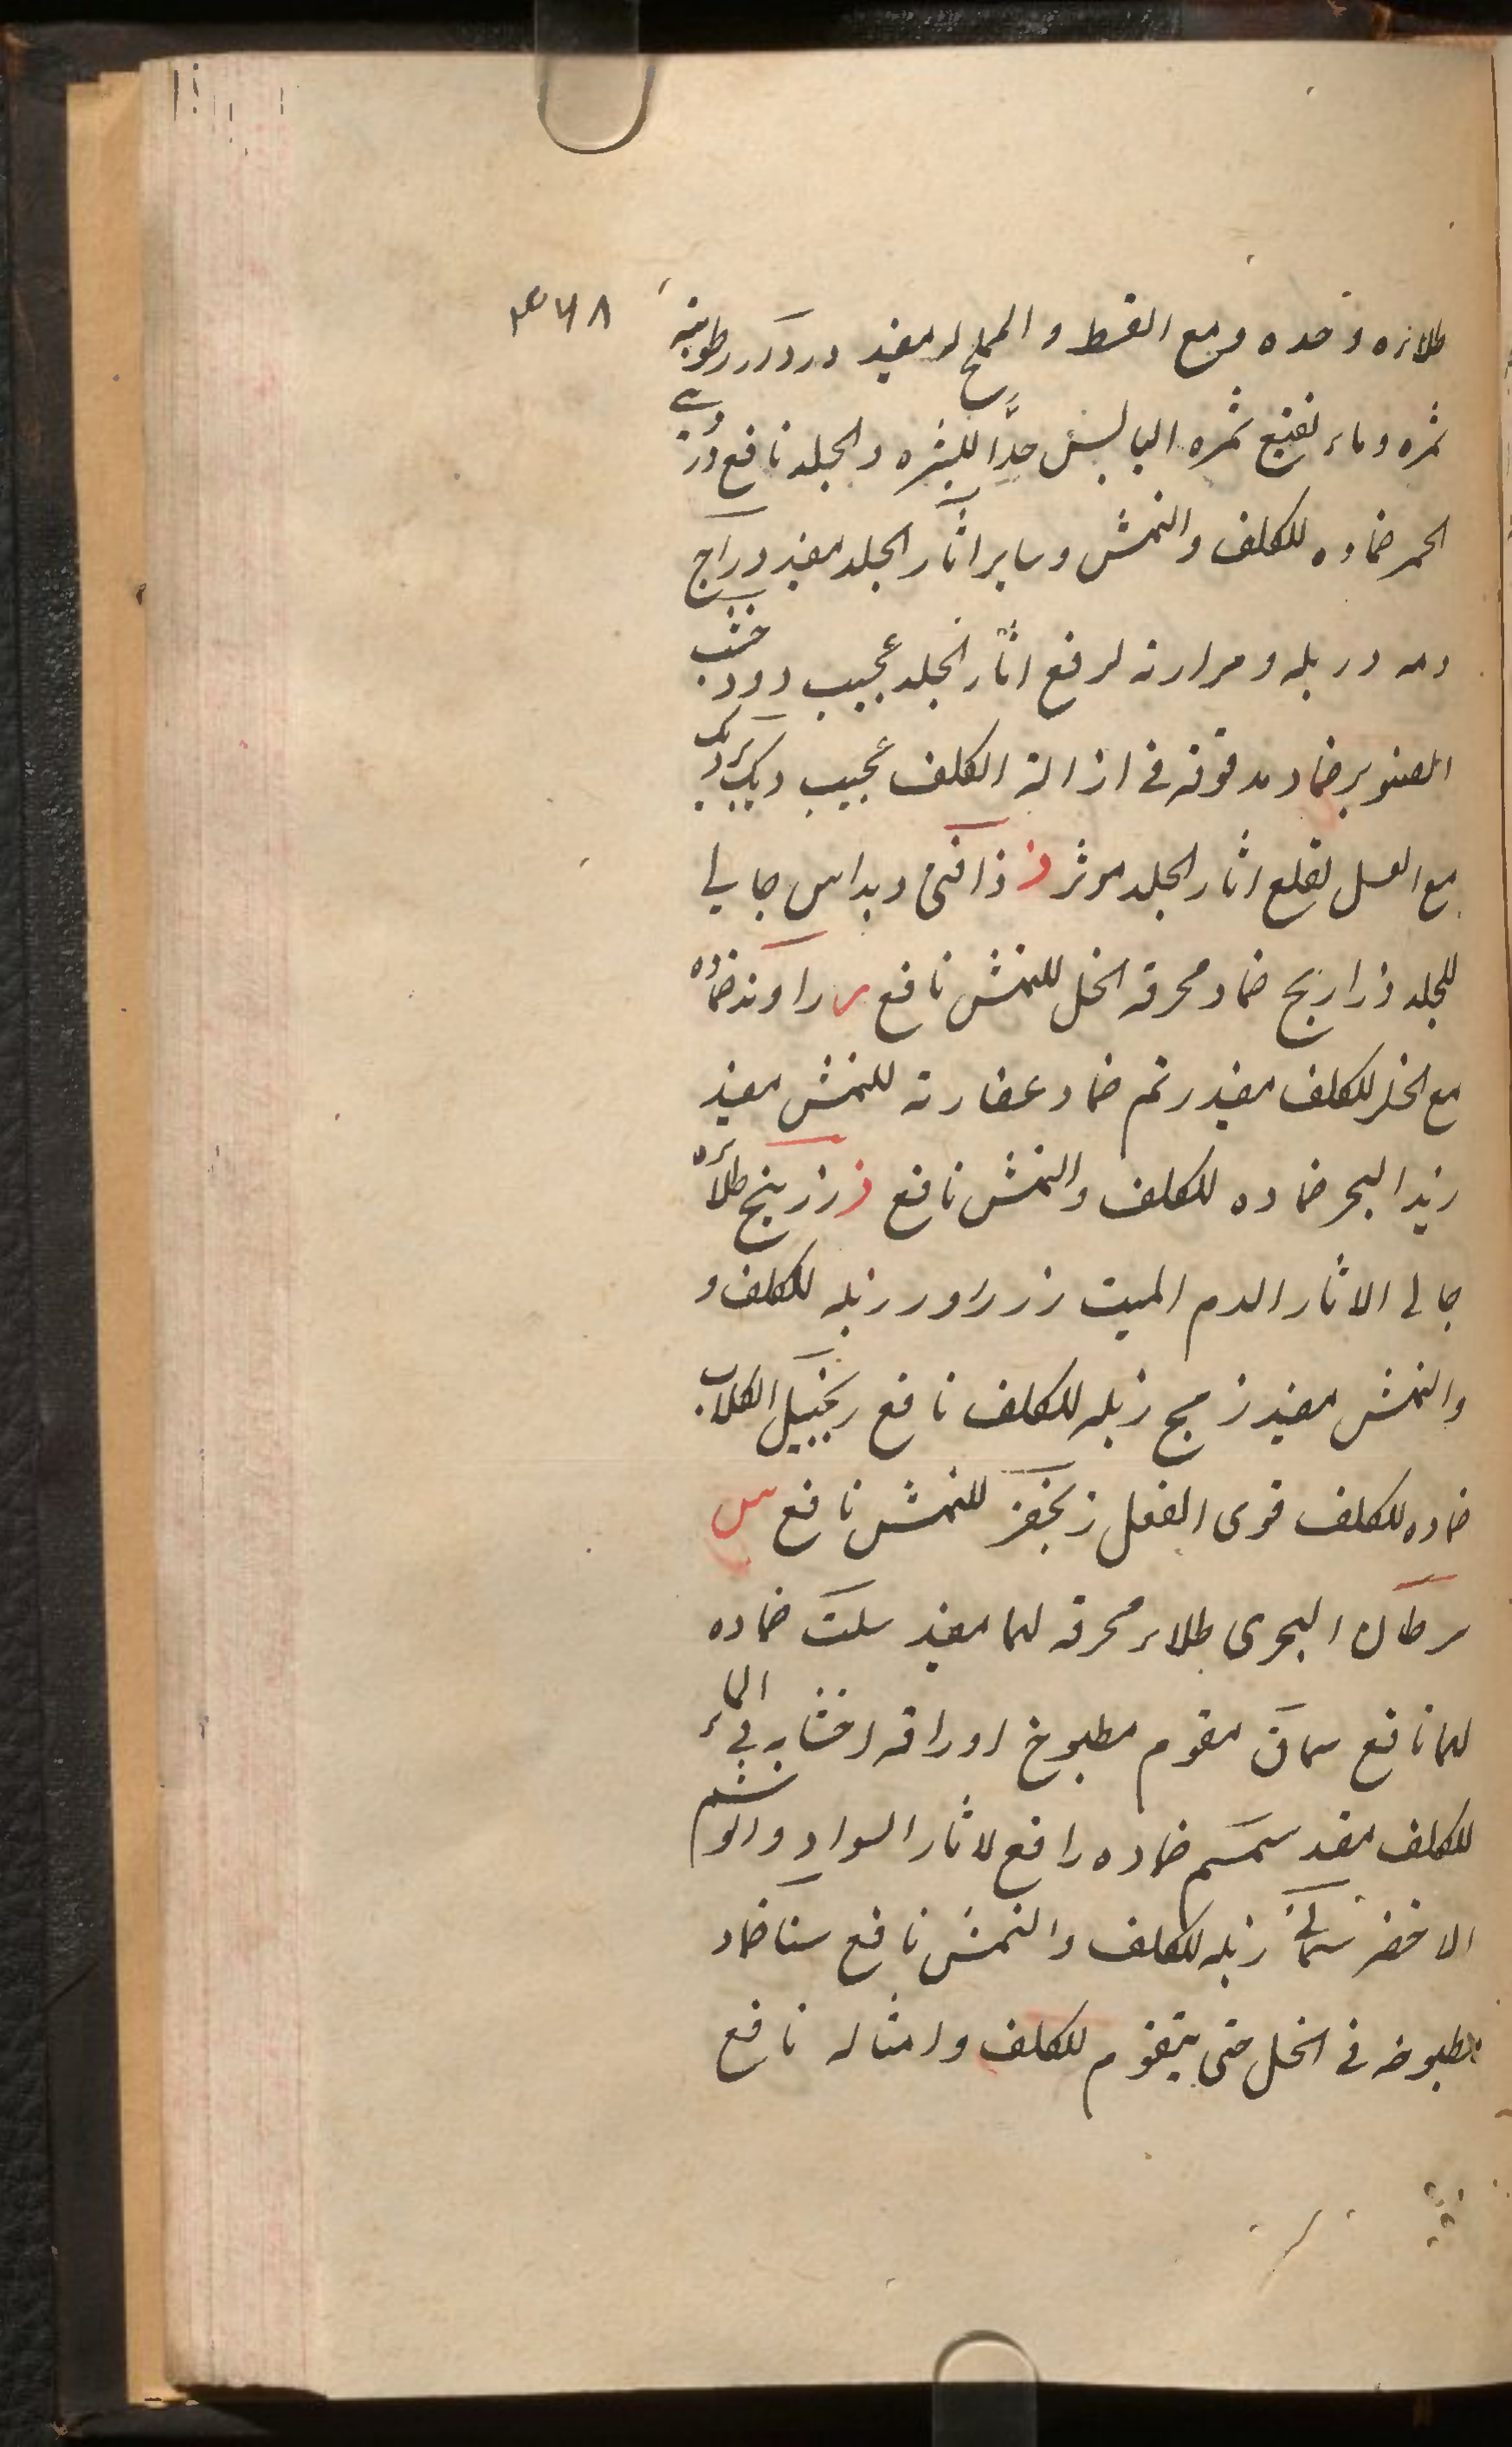 ۳۶۸
طلاءه وحده ومع القسط والملح له مفيد دردار رطوبة
ثمره وماء نقيع ثمره اليابس جدًا للبشره والجلد نافع دردي
الخمر ضماده للكلف والنمش وساير اثار الجلد مفيد دراج
دمه وزبله ومرارته لرفع اثار الجلد عجيب دود خشب
الصنوبر ضماد مدقوقه فی ازالة الكلف عجيب ديك
مع العسل لقلع اثار الجلد موثر ذ ذافنی وبداس جالی
للجلد ذراريح ضماد محرقه الخل للنمش نافع ر راوند ضماده
مع الخل للكلف مفيد رتم ضماد عصارته للنمش مفيد
زبد البحر ضماده للكلف والنمش نافع ز زرنيخ طلاءه
جالی الاثار الدم الميت زرزور زبله للكلف و
والنمش مفيد زمج زبله للكلف نافع زنجبيل الكلاب
ضماده للكلف قوی الفعل زنجفر للنمش نافع س
سرطان البحری طلاء محرقه لهما مفيد سلت ضماده
لهما نافع سماق مقوم مطبوخ اوراقه اخشابه فی الماء
للكلف مفيد سمسم ضماده رافع لاثار السواد والوشم
الاخضر سمانی زبله للكلف والنمش نافع سنا ضماد
مطبوخه فی الخل حتی يتقوم للكلف وامثاله نافع